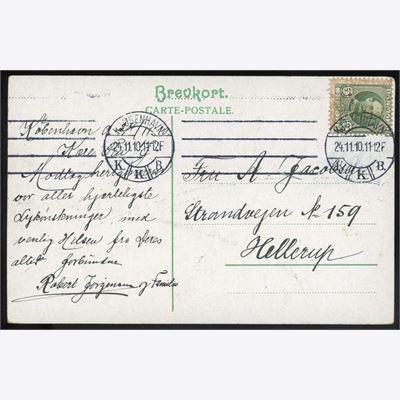 Brevkort.
CARTE-POSTALE.
KJØBENHAVN
24.11.10.11-12F
K K B
KJØBENHAVN
24.11.10.11-12F
K B
København
Kære
Modtag
vor aller hjerteligste
Lykønskninger, med
venlig Hilsen fra Deres
alles forbundne
Robert Jørgensen og Familie
Fru A Jacobsen
Strandvejen № 159
Hellerup